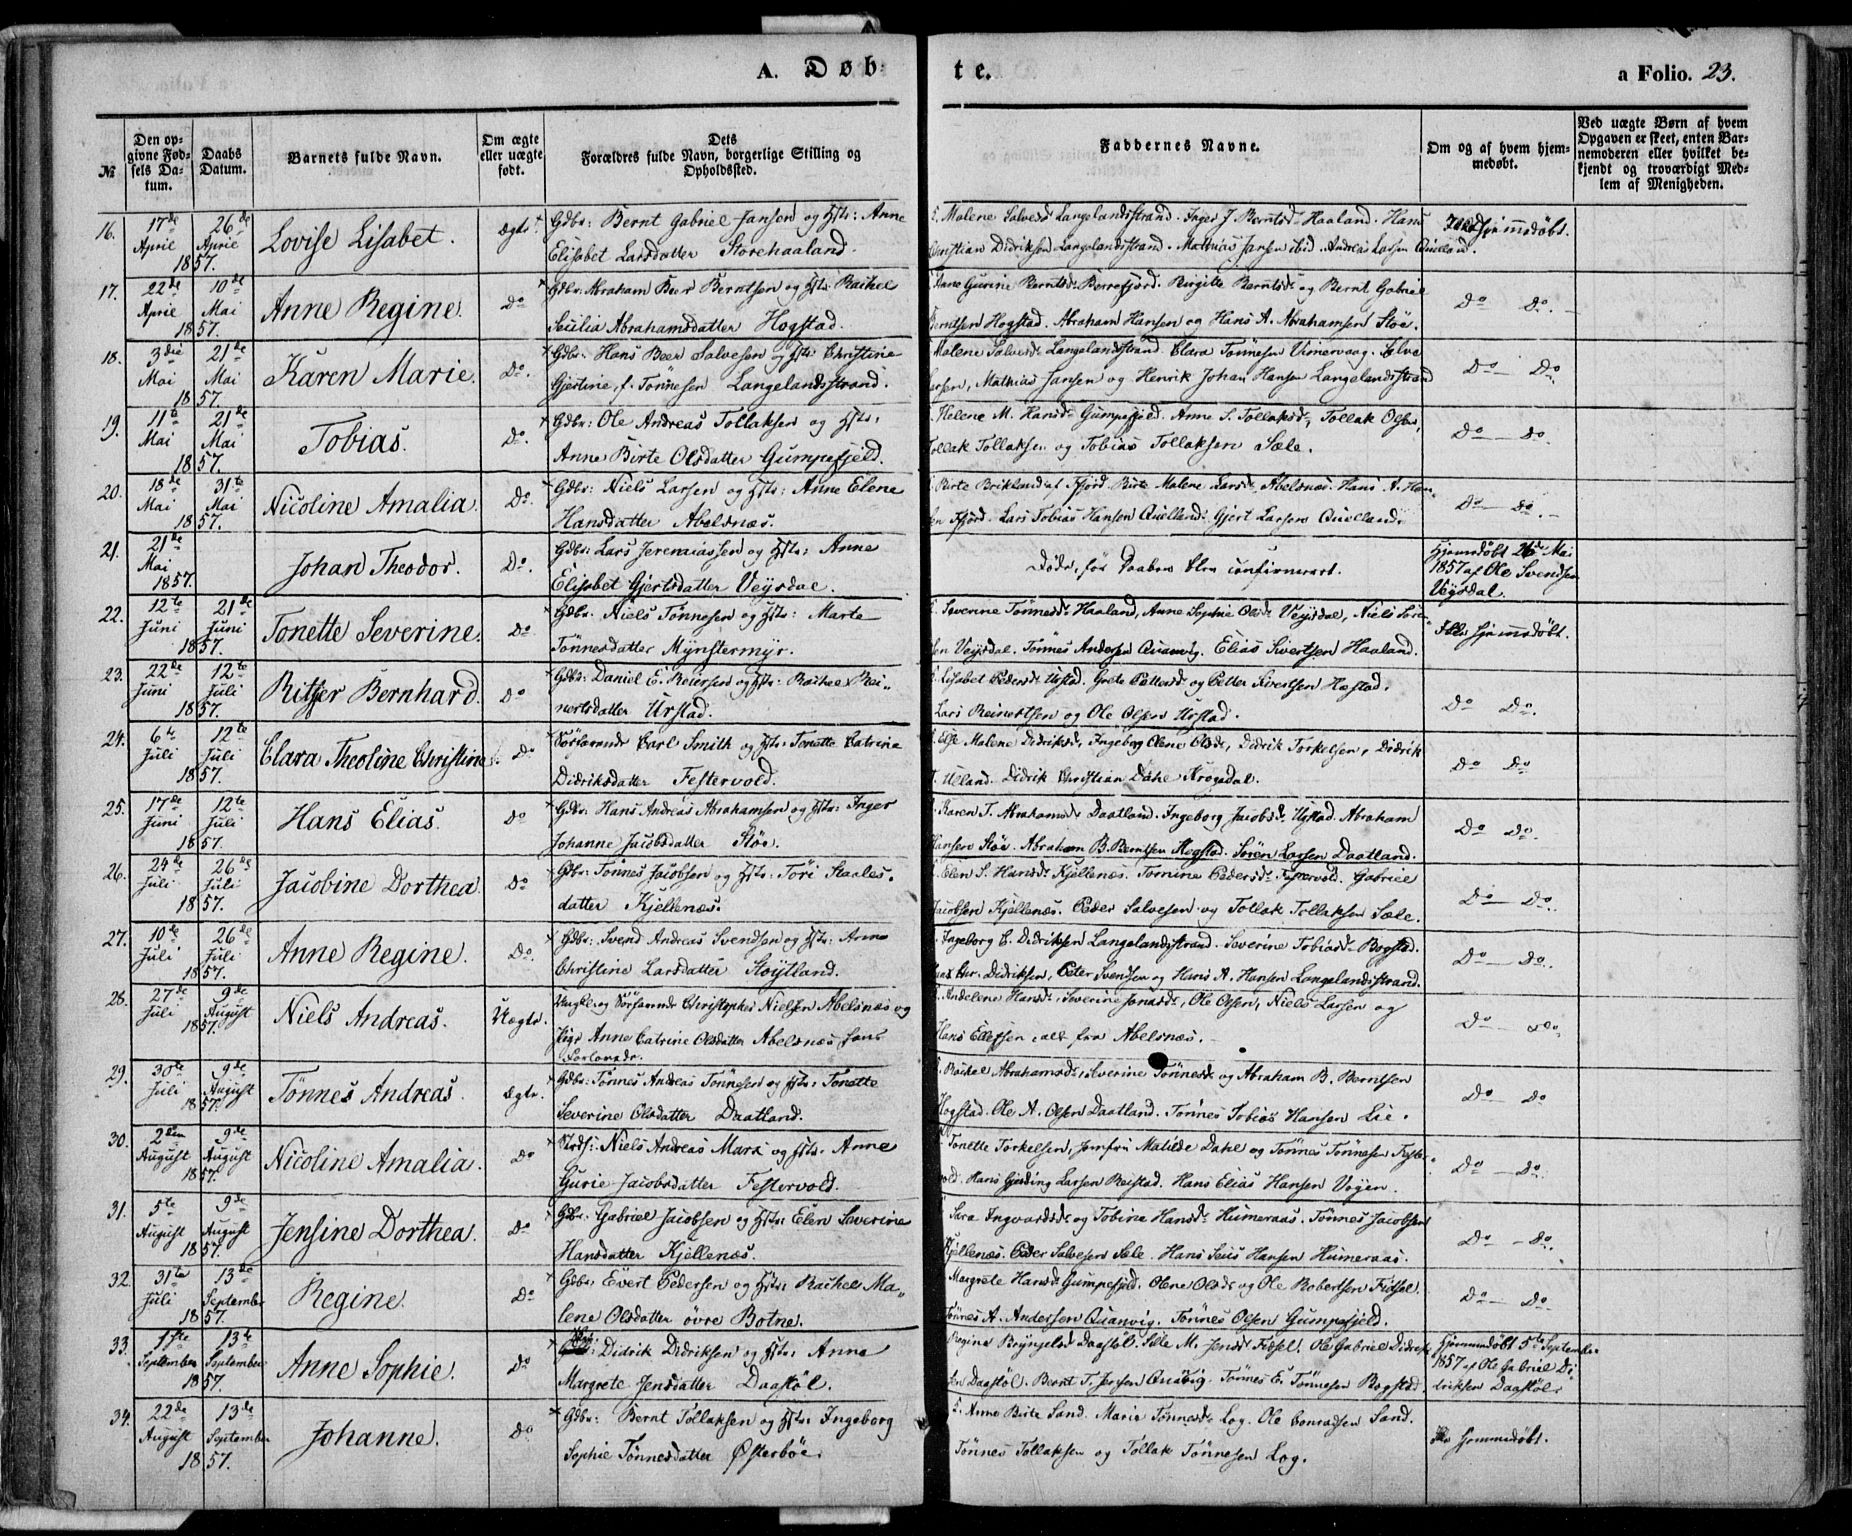 A. Døb-te. a Folio. 23.
№
Den opgivne Fødsels Datum.
Daabs Datum.
Barnets fulde Navn.
Om ægte eller uægte født.
Dets Forældres fulde Navn, borgerlige Stilling og Opholdssted.
Faddernes Navne.
Om og af hvem hjemmedøbt.
Ved uægte Børn af hvem Opgaven er skeet, enten Barnemoderen eller hvilket bekjendt og troværdigt Medlem af Menigheden.
16. 17de April 26de April 1857. Lovise Lisabet. Ægte. Gdbr: Bernt Gabriel Jansen og Hstr: Anne
Elisabet Larsdatter Storehaaland.
Malene Salvesd. Langelandsstrand. Inger J. Berntsd. Haaland. Hans
Christian Didriksen Langelandsstrand. Mathias Jansen ibid. Andreas Larsen Qvelland.
Ikke hjemmedøbt.
17. 22de April 10de Mai 1857. Anne Regine. Do Gdbr: Abraham Beer Berntsen og Hstr: Rachel
Secilia Abrahamsdatter Hogstad.
Ane Gurine Berntsd. Borrefjord. Birgite Berntsd. og Bernt Gabriel
Berntsen Hogstad. Abraham Hansen og Hans A. Abrahamsen Støe.
Do Do.
18. 3die Mai 21de Mai 1857. Karen Marie. Do. Gdbr: Hans Beer Salvesen og Hstr: Christine
Gjertine, f. Tønnesen Langelandsstrand.
Malene Salvesd. Langelandsstrand. Clara Tønnesen Vimervaag. Salve
Larsen, Mathias Jansen og Henrik Johan Hansen Langelandsstrand
Do Do.
19. 11te Mai 21de Mai 1857. Tobias. Do. Gdbr: Ole Andreas Tollaksen og Hstr:
Anne Birte Olsdatter Gumpefjeld.
Helene M. Hansd. Gumpefjeld. Anne S. Tollaksd., Tollak Olsen,
Tollak Tollaksen og Tobias Tollaksen Sæle.
Do Do.
20. 18de Mai 31te Mai 1857. Nicoline Amalia. Do. Gdbr: Niels Larsen og Hstr: Anne Elene
Hansdatter Abelsnæs.
Birte Malene Larsd. Abelsnæs. Hans A. Han-
sen Fjord. Lars Tobias Hansen Qvelland. Gjert Larsen Qvelland.
Do Do.
21. 21de Mai 1857. Johan Theodor. Do. Gdbr: Lars Jeremiassen og Hstr: Anne
Elisabet Gjertsdatter Veisdal.
Døde, før Daaben blev confirmeret.
Hjemmedøbt 26de Mai
1857 af Ole Svendsen
Veisdal.
22. 12te Juni 21de Juni 1857. Tonette Severine. Do Gdbr: Niels Tønnesen og Hstr: Marte
Tønnesdatter Mynstermyr.
Severine Tønnesd. Haaland, Anne Sophie Olsd. Veisdal, Niels Lar-
sen Veisdal. Tønnes Andersen Qvanvig. Elias Sivertsen Haaland.
Ikke hjemmedøbt.
23. 22de Juni 12te Juli 1857. Bernhard. Do Gdbr: Daniel E. Reiersen og Hstr: Rachel Rei-
nertsdatter Urstad.
Lisabet Pedersd. Urstad. Grete Pettersd. og Petter Sivertsen Hæstad.
Lars Reinertsen og Ole Olsen Urstad.
Do Do.
24. 6te Juli 12te Juli 1857. Clara Theoline Christine. Do Søfarende Carl Smith og Hstr: Tonette Catrine
Didriksdatter Festervold.
Else Malene Didriksd., Ingeborg Olene Olsd., Didrik Torkelsen, Didrik
T. Ueland. Didrik Christian Dahl Krogedal.
Do Do
25. 17de Juni 12te Juli 1857. Hans Elias. Do Gdbr: Hans Andreas Abrahamsen og Hstr: Inger
Johanne Jacobsdatter Støe.
Karen T. Abrahamsd. Daatland. Ingeborg Jacobsd. Urstad. Abraham
Hansen Støe. Abraham B. Berntsen Hogstad. Søren Larsen Daatland.
Do Do.
26. 24de Juli 26de Juli 1857. Jacobine Dorthea. Do Gdbr: Tønnes Jacobsen og Hstr: Tori Staales-
datter Kjellenæs.
Elen S. Hansd. Kjellenæs. Tomine Pedersd. Festervold. Gabriel
Jacobsen Kjellenæs. Peder Salvesen og Tollak Tollaksen Sæle.
Do Do.
27. 10de Juli 26de Juli 1857. Anne Regine. Do. Gdbr: Svend Andreas Svendsen og Hstr: Anne
Christine Larsdatter Støytland.
Ingeborg E. Didriksen Langelandsstrand. Severine Tobiasd. Bogstad.
Hans Chr. Didriksen, Peter Svendsen og Hans A. Hansen Langelandsstrand.
Do Do.
28. 27de Juli 9de August 1857. Niels Andreas. Uægte. Ungkl. og Søfarende Christopher Nielsen Abelsnæs og
Pige Anne Catrine Olsdatter Abelsnæs hans
Forlovede.
Andelene Hansd., Severine Jonasd., Ole Olsen, Niels Larsen og
Hans Ellefsen, alt fra Abelsnæs.
Do Do.
29. 30te Juli 9de August 1857. Tønnes Andreas. Ægte. Gdbr: Tønnes Andreas Tønnesen og Hstr: Tonette
Severine Olsdatter Daatland.
Rachel Abrahamsd., Severine Tønnesd. og Abraham B. Berntsen
Hogstad. Ole A. Olsen Daatland. Tønnes Tobias Hansen Lie.
Do Do
30. 2den August 9de August 1857. Nicoline Amalia. Do Niels Andreas Marx og Hstr: Anne
Gurie Jacobsdatter Festervold.
Tonette Torkelsen, Jomfru Matilde Dahl og Tønnes Tønnesen Fester-
vold. Hans Gjerding Larsen Reistad. Hans Elias Hansen Vogen.
Do Do.
31. 5te August 9de August 1857. Jensine Dorthea. Do Gdbr: Gabriel Jacobsen og Hstr: Elen Severine
Hansdatter Kjellenæs.
Sara Ingvardsd. og Tobine Hansd. Humeraas. Tønnes Jacobsen
Kjellenæs. Peder Salvesen Sæle. Hans Hansen Humeraas.
Do Do.
32. 31te Juli 13de September 1857. Regine. Do Gdbr: Evert Pedersen og Hstr: Rachel Ma-
lene Olsdatter øvre Botne.
Margrete Hansd. Gumpefjeld. Olene Olsd. og Ole Robertsen Fidsel.
Tønnes A. Andersen Qvanvig. Tønnes Olsen Gumpefjeld.
Do Do
33. 1ste September 13de September 1857. Anne Sophie. Do Didrik Didriksen og Hstr: Anne
Margrete Jensdatter Daastøl.
Regine Bryngelsd. Daastøl. Sille M. Jensd. Fidsel. Ole Gabriel Didrik-
sen Daastøl. Bernt T. Jensen Qvavig. Tønnes E. Tønnesen Bogstad.
Hjemmedøbt 5te September
1857 af Ole Gabriel Di-
driksen Daastøl.
34. 22de August 13de September 1857. Johanne. Do. Gdbr: Bernt Tollaksen og Hstr: Ingeborg
Sophie Tønnesdatter Østerbøe.
Anne Birte Sand. Marie Tønnesd. Log. Ole Conradsen Sand.
Tønnes Tollaksen og Tollak Tønnesen Log.
Ikke hjemmedøbt.